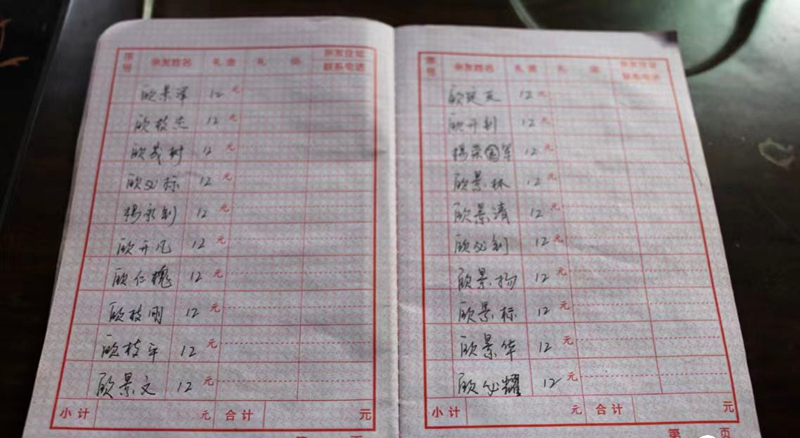 序号 亲友姓名 礼金 礼品 亲友住址 联系电话
欧景军 12元
欧枝杰 12元
欧茂树 12元
欧必标 12元
杨永剑 12元
欧开凡 12元
欧仁槐 12元
欧枝明 12元
欧枝平 12元
欧景文 12元
小计 元 合计 元
第 页
序号 亲友姓名 礼金 礼品 亲友住址 联系电话
欧 12元
欧开利 12元
杨荣国军 12元
欧景林 12元
欧景清 12元
欧必利 12元
欧景扬 12元
欧景标 12元
欧景华 12元
欧必耀 12元
小计 元 合计 元
第 页